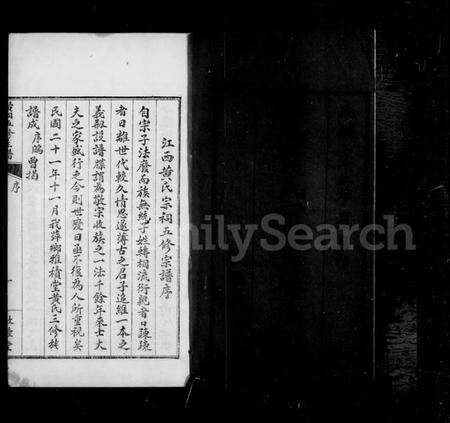 江西黄氏宗祠五修宗譜序
自宗子法廢而族無統子姓轉相流衍親者日疎疎
者日離世代較久情思遂薄古之君子追維一本之
義斯設譜牒謂為敬宗收族之一法千餘年來士大
夫之家盛行之今則世變日亟不復為人所重視矣
民國二十一年十一月我萍鄉雅積堂黄氏三修族
譜成序端曾揭
序
FamilySearch